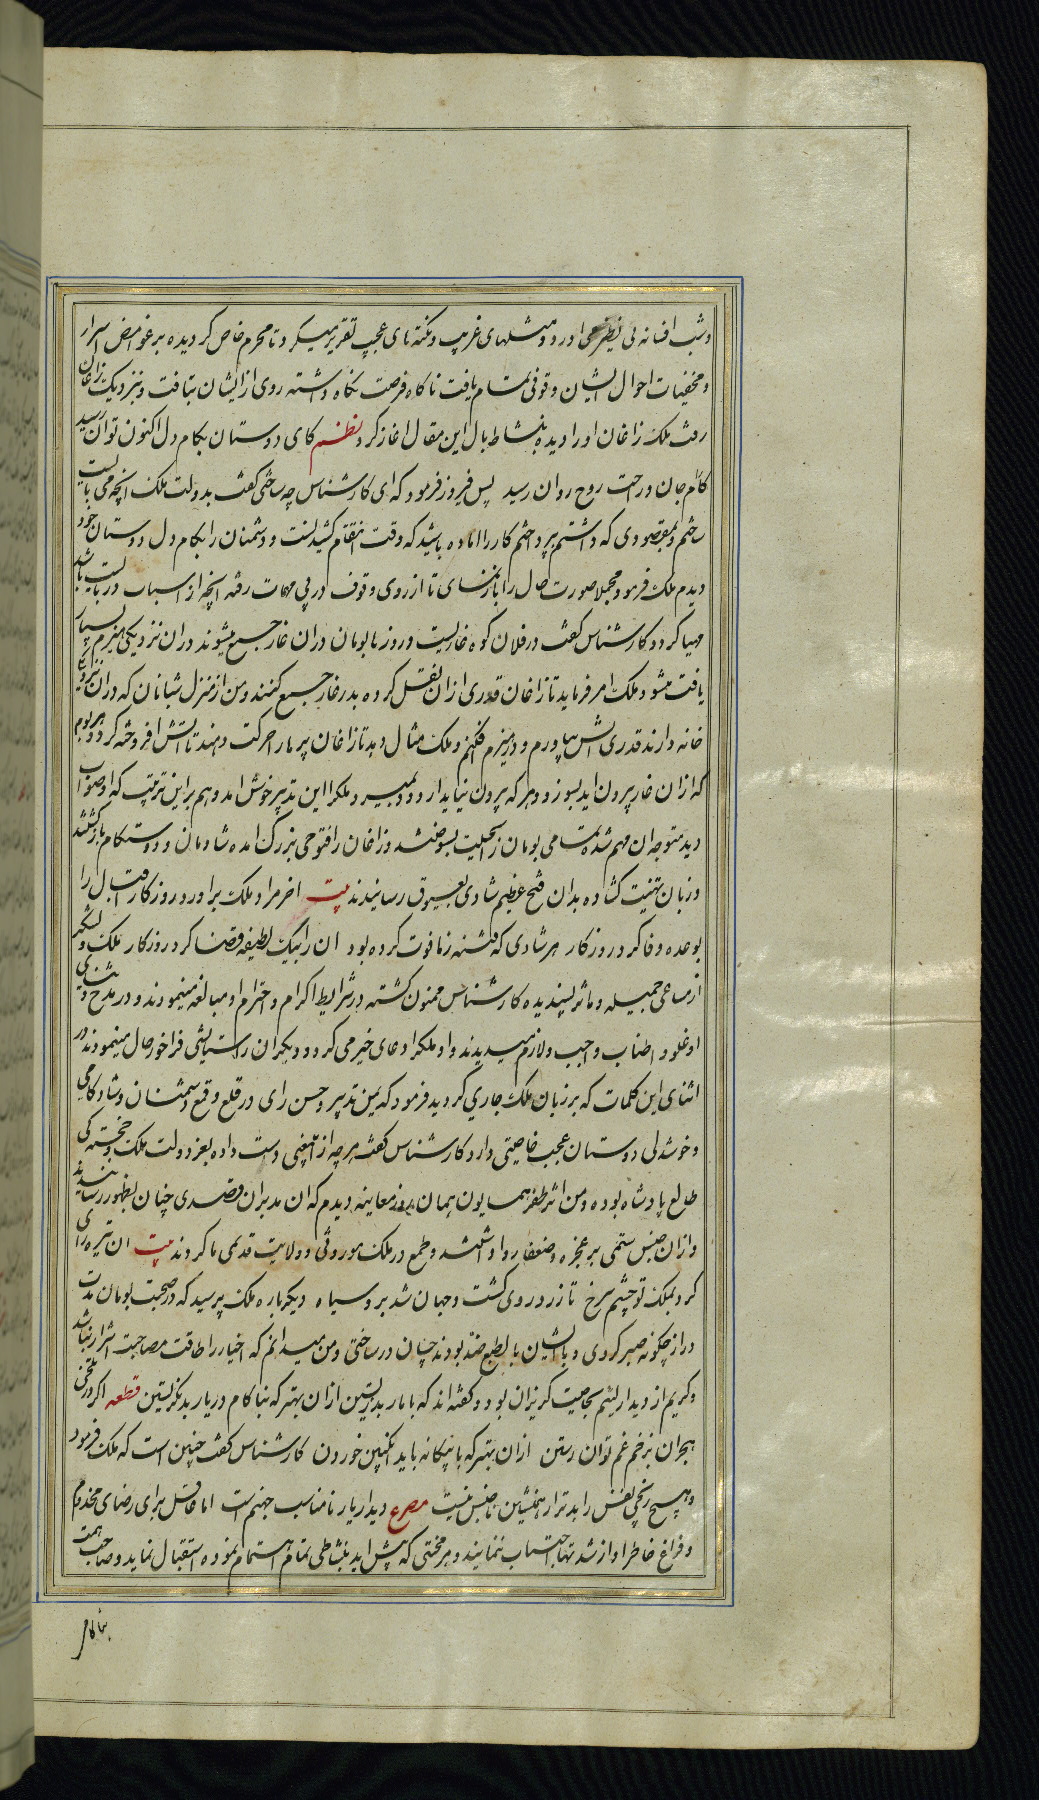 و شب افسانه بی نظیر می اورد و مثلهای غریب و نکته های عجیب تقریر میکرد تا محرم خاص کردیده بر غوامض اسرار
و مخفیات احوال ایشان وقوفی تمام یافت ناکاه فرصت نکاه داشته روی از ایشان بتافت و بنزدیک زاغان
رفت ملک زاغان او را دیده بنشاط بال این مقال اغاز کرد نظم کای دوستان بکام دل اکنون توان رسید
کام جان و راحت روح روان رسید پس فیروز فرمود که ای کارشناس چه ساختی کفت بدولت ملک انچه می بایست
ساختم و بمقصودی که داشتم پرداختم کار را اماده باشید که وقت انتقام کشیدنست و دشمنان را بکام دل دوستان خود
دیدم ملک فرمود مجملا صورت حال را بازنمای تا از روی وقوف در پی مهمات رفته انچه از اسباب دربایست باشد
مهیا کردد کارشناس کفت در فلان کوه غاریست و روزها بومان دران غار جمع میشوند و دران نزدیکی هیزم بسیار
یافت میشود ملک امر فرماید تا زاغان قدری ازان نقل کرده بدر غار جمع کنند و من از منزل شبانان که دران نزدیکی
خانه دارند قدری اتش بیاورم و در هیزم افکنم و ملک مثال دهد تا زاغان پرها را حرکت دهند تا اتش افروخته کردد هر بوم
که ازان غار بیرون اید بسوزد و هر که بیرون نیاید از دود بمیرد ملک را این تدبیر خوش امد و هم براین ترتیب که او صواب
دید متوجه ان مهم شده تمامی بومان را بحیلت بسوختند و زاغان را فتوحی بزرک امده شادمان و دوستکام بازکشتند
و زبان تهنیت کشاده بدان فتح عظیم شادی بعیوق رسانیدند بیت اخر مراد ملک براورد روزکار اقبال را
بوعده وفا کرد روزکار هر شادی که فتنه ز ما فوت کرده بود ان را بیک لطیفه قضا کرد روزکار ملک و لشکر
از مساعی جمیله و ماثر پسندیده کارشناس ممنون کشته در شرایط اکرام و احترام او مبالغه مینمودند و در مدح و ثنای
او غلو و اطناب واجب و لازم میدیدند و او ملک را دعای خیر می کرد و دیکران را ستایشی فراخور حال مینمودند در
اثنای این کلمات که بر زبان ملک جاری کردید فرمود که یمن تدبیر و حسن رای در قلع و قمع دشمنان و شادکامی
و خوشدلی دوستان عجب خاصیتی دارد کارشناس کفت هر چه از اینمعنی دست داده بفر دولت ملک و خجستکی
طالع پادشاه بوده و من اثر ظفر همایون همان روز معاینه دیدم که ان مدبران قصدی چنان بظهور رسانیدند
و ازان جنس ستمی بر عجزه و ضعفا روا داشتند و طمع در ملک موروثی و ولایت قدیمی ما کردند بیت ان تیره رای
کرد بملک تو چشم سرخ تا زرد روی کشت و جهان شد برو سیاه دیکرباره ملک پرسید که در صحبت بومان مدت
دراز چکونه صبر کردی و با ایشان بالطبع ضد بودند چسان در ساختی و من میدانم که اخیار را طاقت مصاحبت اشرار نباشد
و کریم از دیدار لئیم بجمیت کریزان بود و کفته اند که با مار بد زیستن ازان بهتر که بناکام در یار بد نکریستن قطعه اکر در تلخی
هجران بزخم غم توان رستن ازان بهتر که با بیکانه باید انکبین خوردن کارشناس کفت چنین است که ملک فرمود
و هیچ رنجی نفس را بدتر از همنشین ناجنس نیست مصرع دیدار یار نامناسب جهنم است اما عاقل برای رضای مخدوم
و فراغ خاطر او از شدتها اجتناب ننماید و هر محنتی که پیش اید بنشاطی تمام اهتمام نموده استقبال نماید و صاحب همت
بناکام